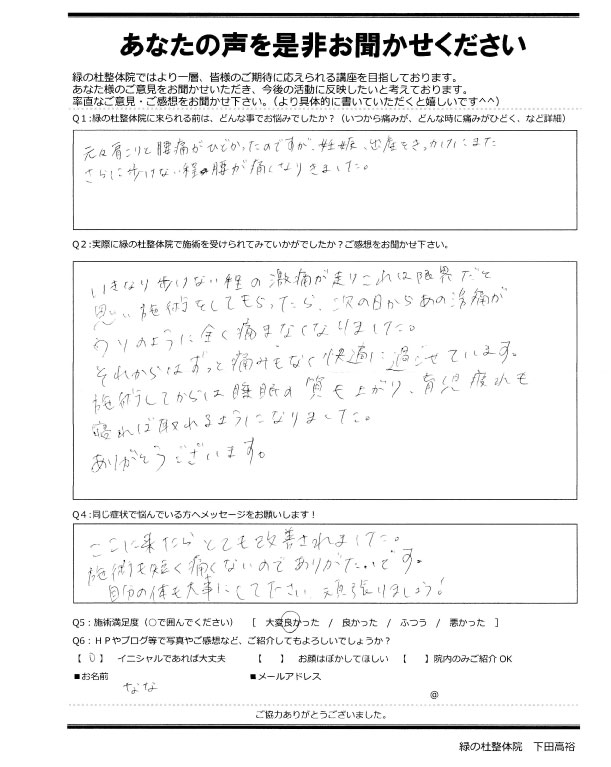 あなたの声を是非お聞かせください
緑の杜整体院ではより一層、皆様のご期待に応えられる講座を目指しております。
あなた様のご意見をお聞かせいただき、今後の活動に反映したいと考えております。
率直なご意見・ご感想をお聞かせ下さい。（より具体的に書いていただくと嬉しいです^^）
Q1：緑の杜整体院に来られる前は、どんな事でお悩みでしたか？（いつから痛みが、どんな時に痛みがひどく、など詳細）
元々肩こりと腰痛がひどかったのですが、妊娠、出産をきっかけにまた
さらに歩けない程 腰が痛くなりきました。
Q2：実際に緑の杜整体院で施術を受けられてみていかがでしたか？ご感想をお聞かせ下さい。
いきなり歩けない程の激痛が走りこれは限界だと
思い施術をしてもらったら、次の日からあの激痛が
ウソのように全く痛まなくなりました。
それからはずっと痛みもなく快適に過ごせています。
施術うしてからは睡眠の質も上がり、育児疲れも
寝れば取れるようになりました。
ありがとうございます。
Q4：同じ症状で悩んでいる方へメッセージをお願いします！
ここに来たらとても改善されました。
施術も短く痛くないのでありがたいです。
自分の体も大事にして下さい、頑張りましょう！
Q5：施術満足度（○で囲んでください） [ 大変良かった / 良かった / ふつう / 悪かった ]
Q6：ＨＰやブログ等で写真やご感想など、ご紹介してもよろしいでしょうか？
【 O 】 イニシャルであれば大丈夫 【 】 お顔はぼかしてほしい 【 】院内のみご紹介 OK
■お名前 ■メールアドレス
なな
@
ご協力ありがとうございました。
緑の杜整体院 下田高裕